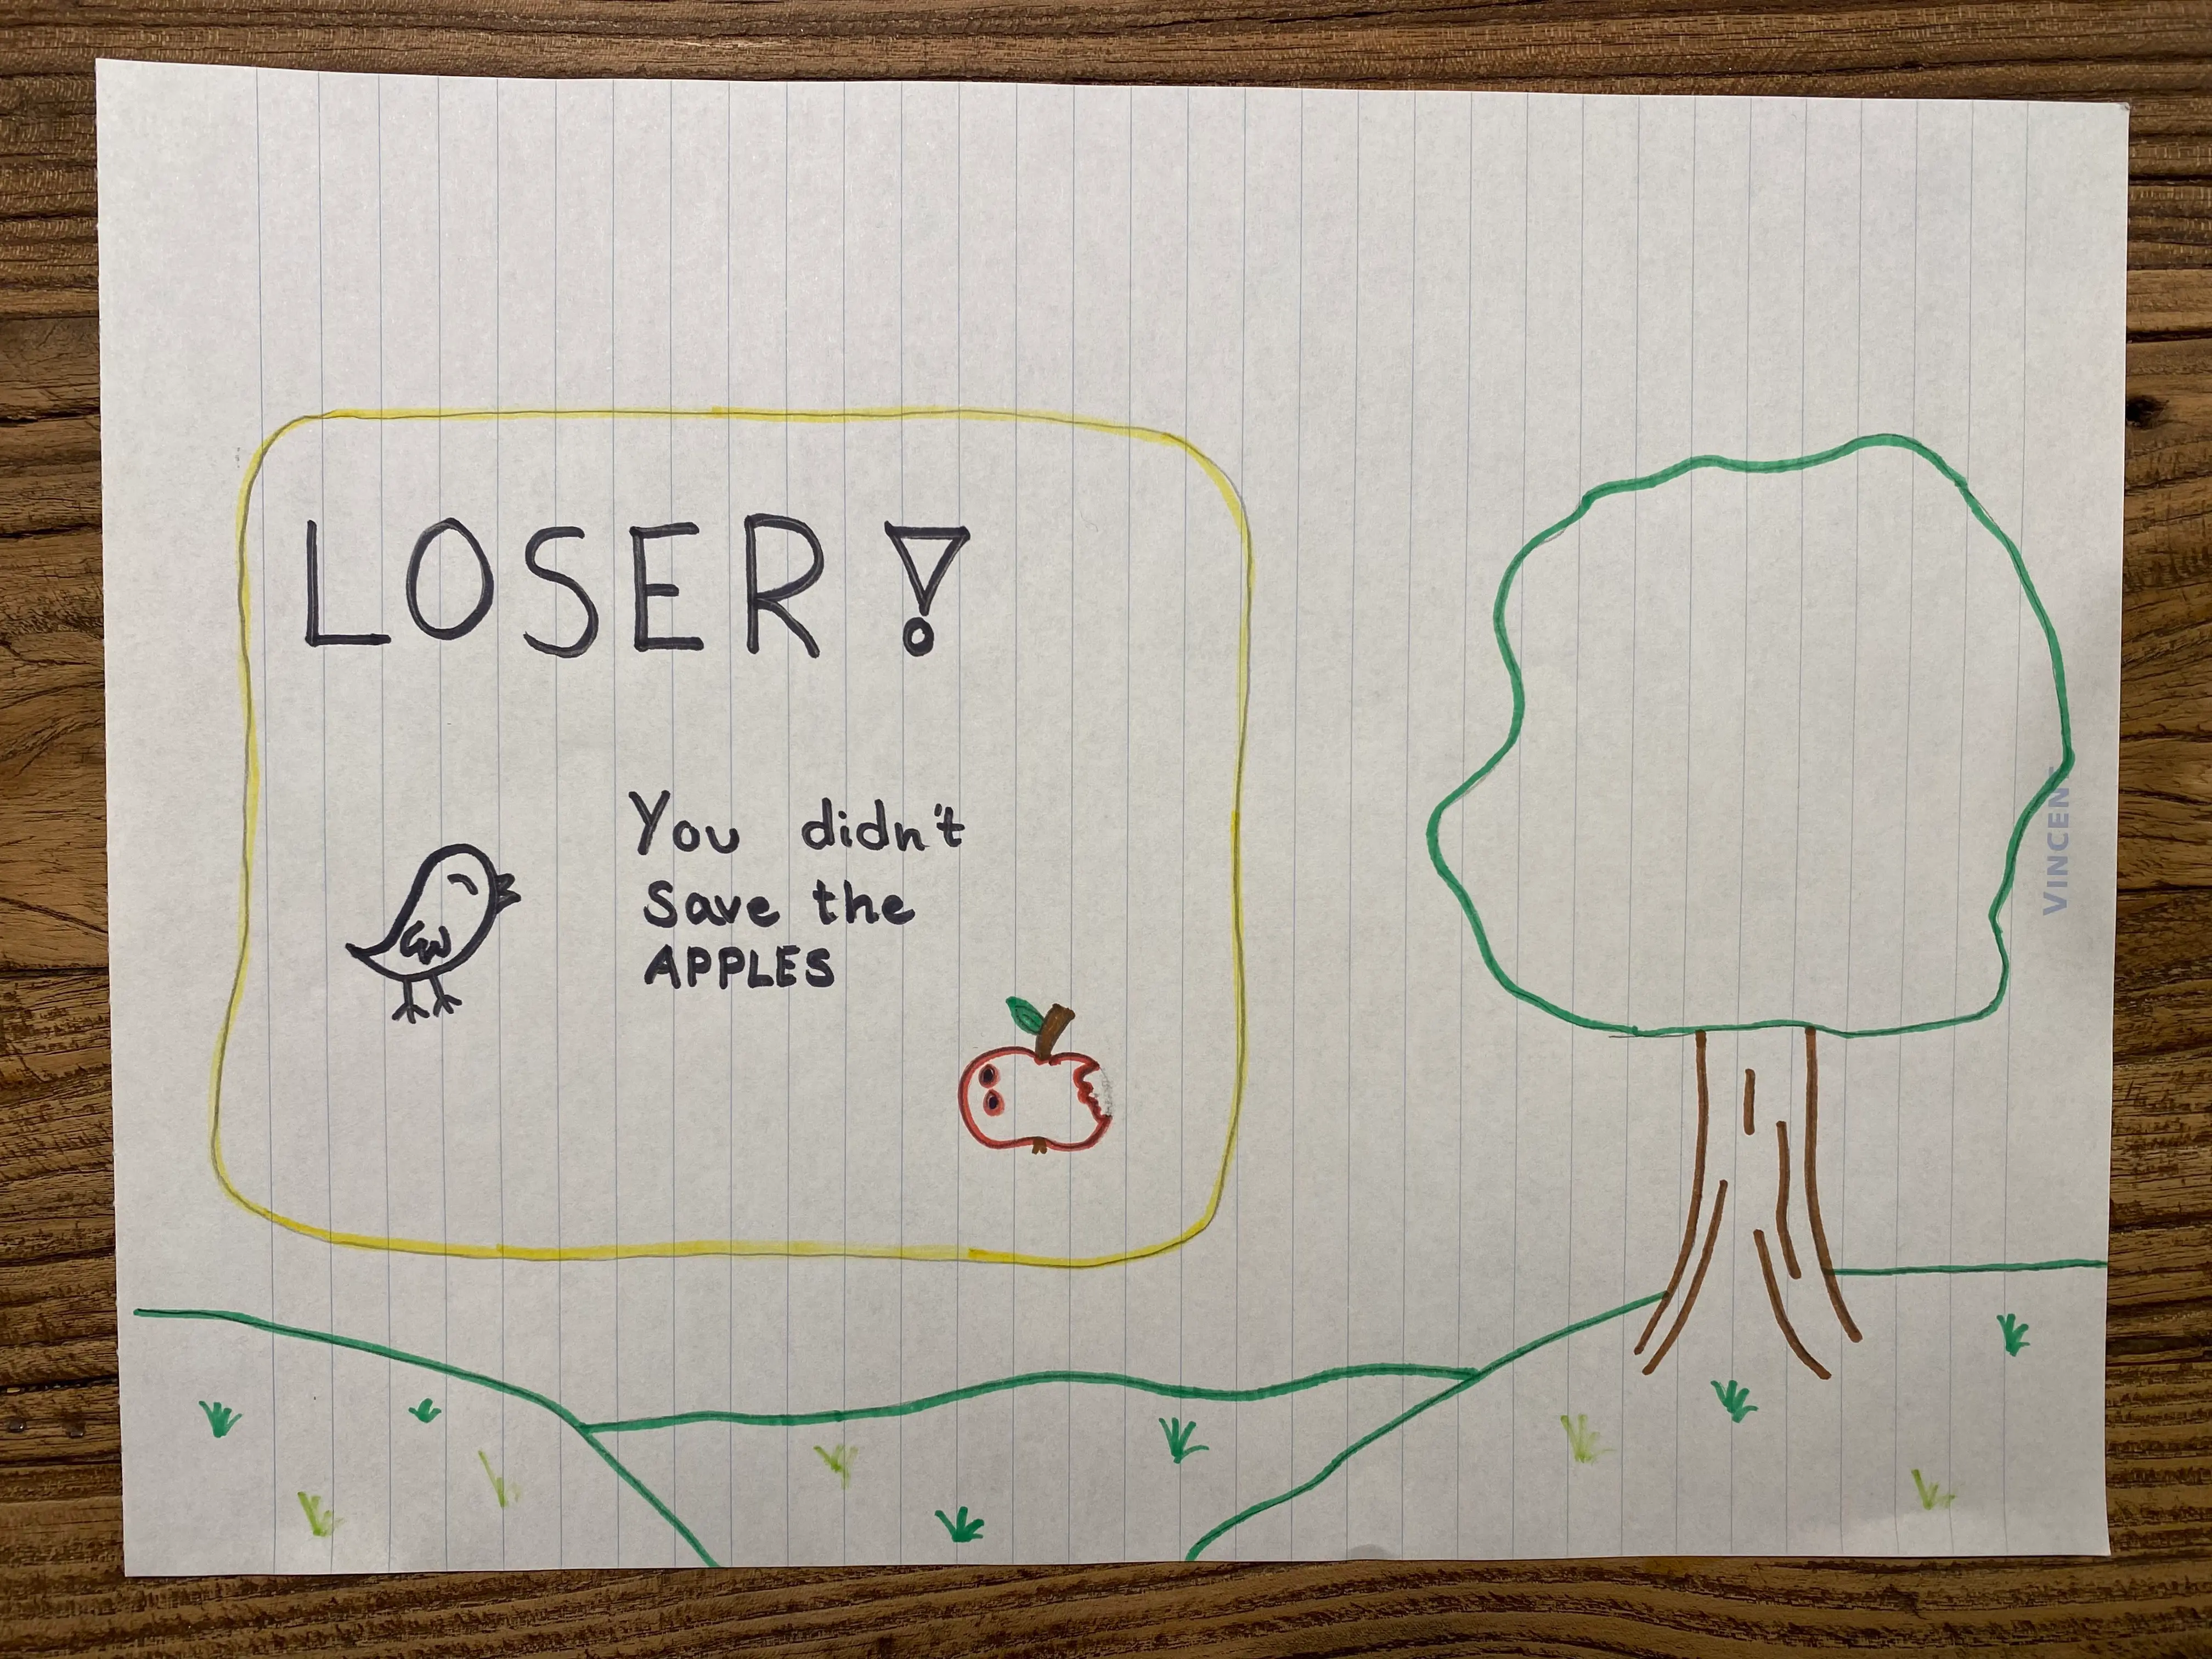 LOSER!
You didn't
Save the
APPLES
VINCENT